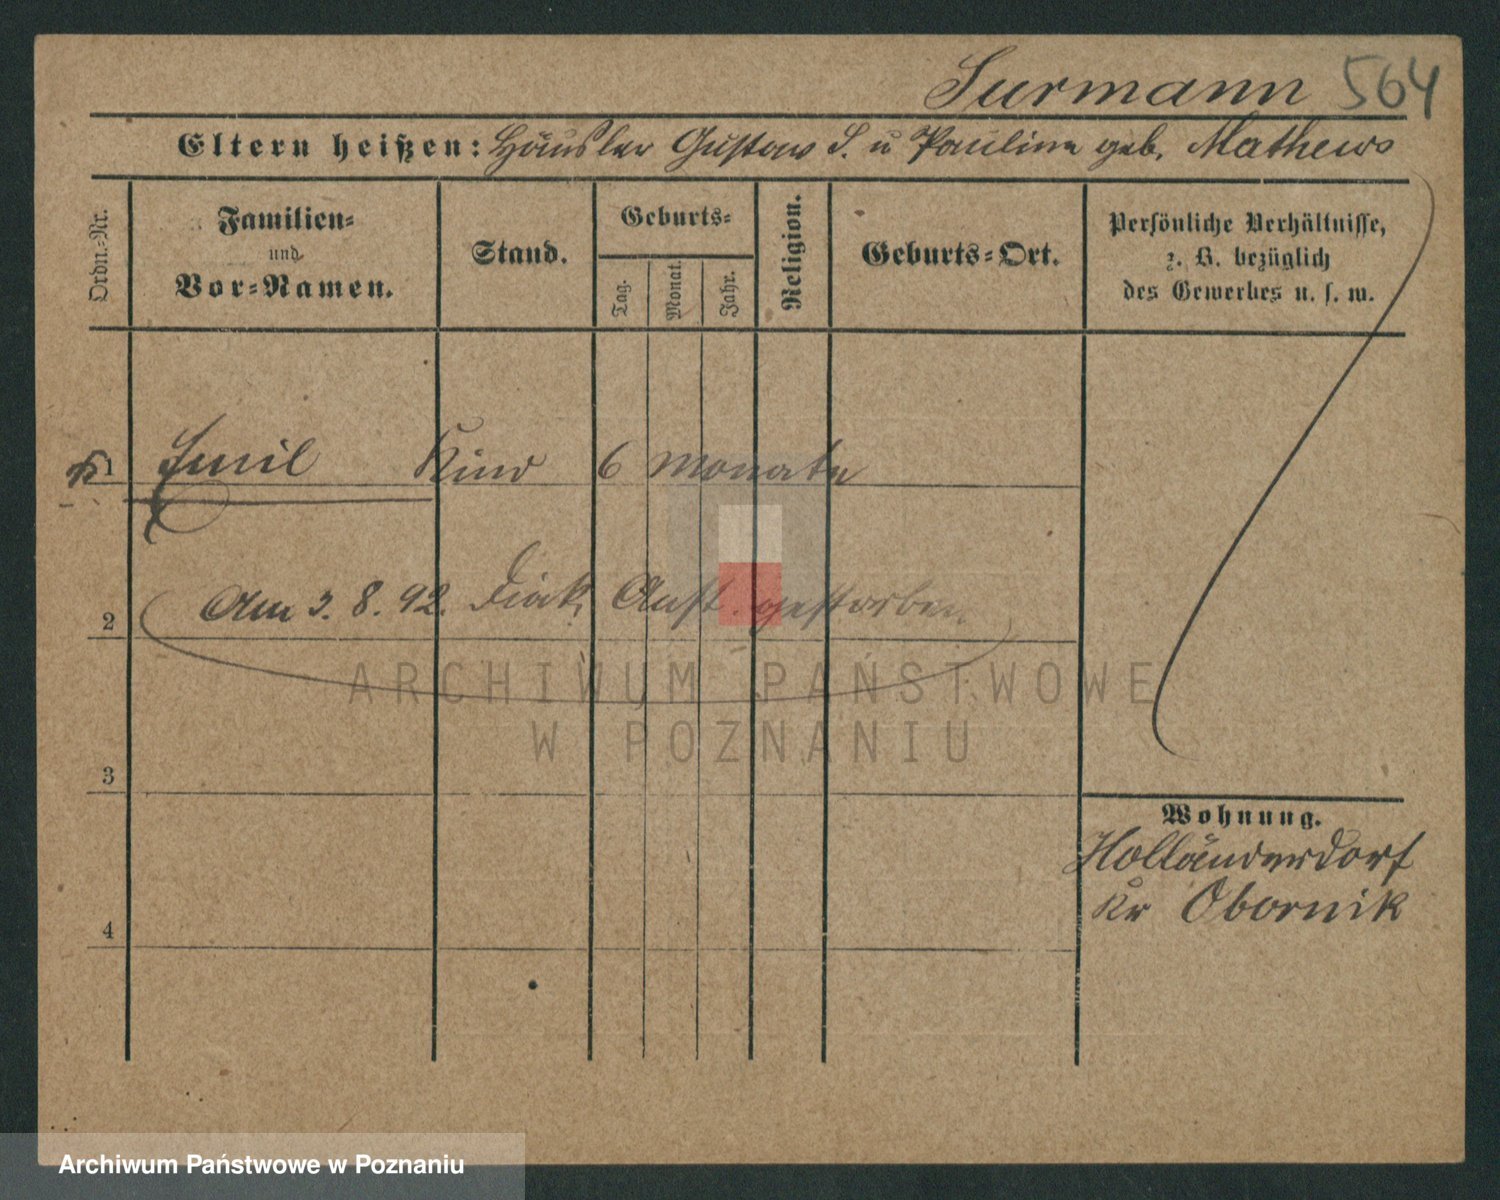 Surmann 564
Eltern heißen: Häusler Gustav S. u Pauline geb. Mathews
Ordn.-Nr.
Familien-
und
Vor-Namen.
Stand.
Geburts-
Tag.
Monat.
Jahr.
Religion.
Geburts-Ort.
Persönliche Verhältnisse,
z. B. bezüglich
des Gewerbes u. s. w.
1 Emil Kind 6 Monate
2 Am 3. 8. 92. Diak. Anst. gestorben
ARCHIWUM PAŃSTWOWE
W POZNANIU
3
Wohnung.
Holländerdorf
Kr Obornik
4
Archiwum Państwowe w Poznaniu